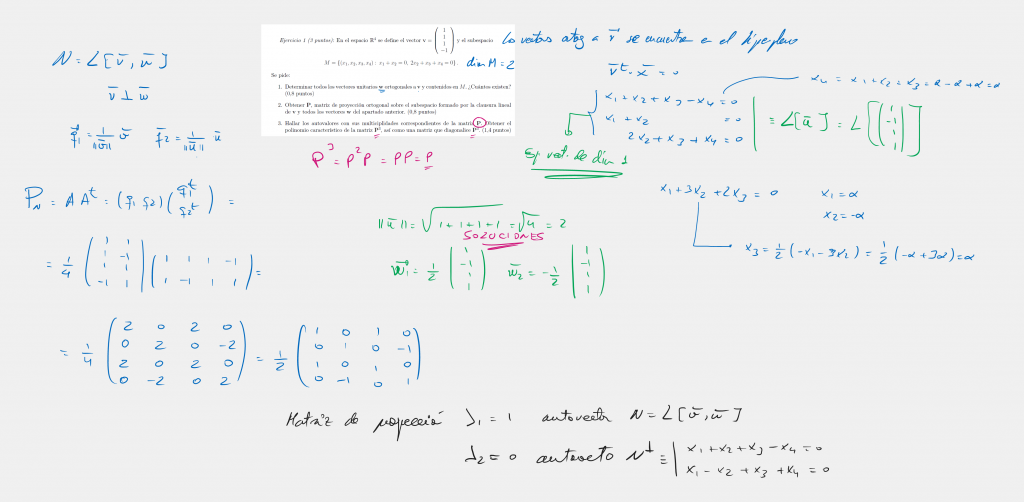 Ejercicio 1 (3 puntos): En el espacio R⁴ se define el vector v = (1 1 1 −1) y el subespacio
M = {(x₁, x₂, x₃, x₄) : x₁ + x₂ = 0, 2x₂ + x₃ + x₄ = 0}. dim M = 2
Se pide:
1. Determinar todos los vectores unitarios w ortogonales a v y contenidos en M. ¿Cuántos existen? (0,8 puntos)
2. Obtener P, matriz de proyección ortogonal sobre el subespacio formado por la clausura lineal de v y todos los vectores w del apartado anterior. (0,8 puntos)
3. Hallar los autovalores con sus multiplicidades correspondientes de la matriz P. Obtener el polinomio característico de la matriz P³, así como una matriz que diagonalice P³. (1,4 puntos)
P³ = P²P = PP = P
Los vectores a v̄ se encuentra e el hiperplano
v̄ᵗ·x̄ = 0
x₁ + x₂ + x₃ − x₄ = 0
x₁ + x₂ = 0
2x₂ + x₃ + x₄ = 0
≡ L[ū] = L[(1 −1 1 1)]
x₄ = x₁ + x₂ + x₃ = α − α + α = α
Esp vect. de dim 1
x₁ + 3x₂ + 2x₃ = 0
x₁ = α
x₂ = −α
x₃ = 1/2 (−x₁ − 3x₂) = 1/2 (−α + 3α) = α
N = L[v̄, ū]
v̄ ⊥ w̄
q̄₁ = 1/‖v̄‖ v̄ q̄₂ = 1/‖ū‖ ū
P_N = A Aᵗ = (q₁ q₂) (q₁ᵗ q₂ᵗ) =
= 1/4 (1 1
1 −1
1 1
−1 1) (1 1 1 −1
1 −1 1 1) =
‖ū‖ = √(1 + 1 + 1 + 1) = √4 = 2
SOLUCIONES
w̄₁ = 1/2 (1 −1 1 1) w̄₂ = −1/2 (1 −1 1 1)
= 1/4 (2 0 2 0
0 2 0 −2
2 0 2 0
0 −2 0 2) = 1/2 (1 0 1 0
0 1 0 −1
1 0 1 0
0 −1 0 1)
Matriz de proyección λ₁ = 1 autovector N = L[v̄, ū]
λ₂ = 0 autovecto N⊥ ≡ x₁ + x₂ + x₃ − x₄ = 0
x₁ − x₂ + x₃ + x₄ = 0